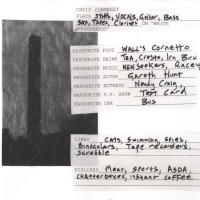 CHRIS CONNELLY
PLAYS SYNTH, VOCALS, Guitar, Bass
Sax, Tapes, Clarinet ON "WRITE
FAVOURITE FOOD WALL'S Cornetto
FAVOURITE DRINK TEA, Cresta, Irn Bru
FAVOURITE MUSIC NEW SEEKERS, Racey
FAVOURITE ACTOR Gareth Hunt
FAVOURITE ACTRESS Wendy Craig
FAVOURITE T.V. SHOW Test Card
FAVOURITE CAR Bus
LIKES CATS, Swimming, Skies,
Binoculars, Tape recorders,
scrabble
DISLIKES Meat, Sports, ASDA,
Chatterboxes, instant coffee